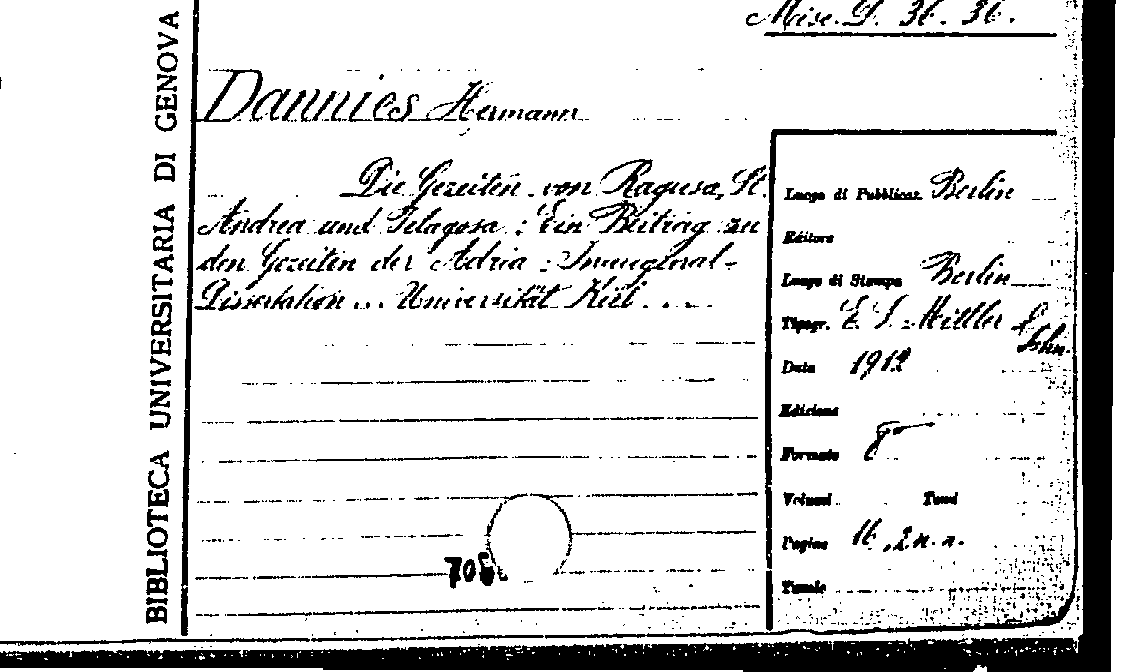 Misc. D. 36. 36.
BIBLIOTECA UNIVERSITARIA DI GENOVA
Dannies Hermann
Die Gezeiten von Ragusa, St.
Andrea und Pelagosa : Ein Beitrag zu
den Gezeiten der Adria : Inaugural-
Dissertation ... Universität Kiel ....
Luogo di Pubblicaz. Berlin
Editore
Luogo di Stampa Berlin
Tipogr. E. S. Mittler &
Sohn.
Data 1912
Edizione
Formato 8°
Volumi Tomi
Pagine 16, 2 n. n.
Tavole